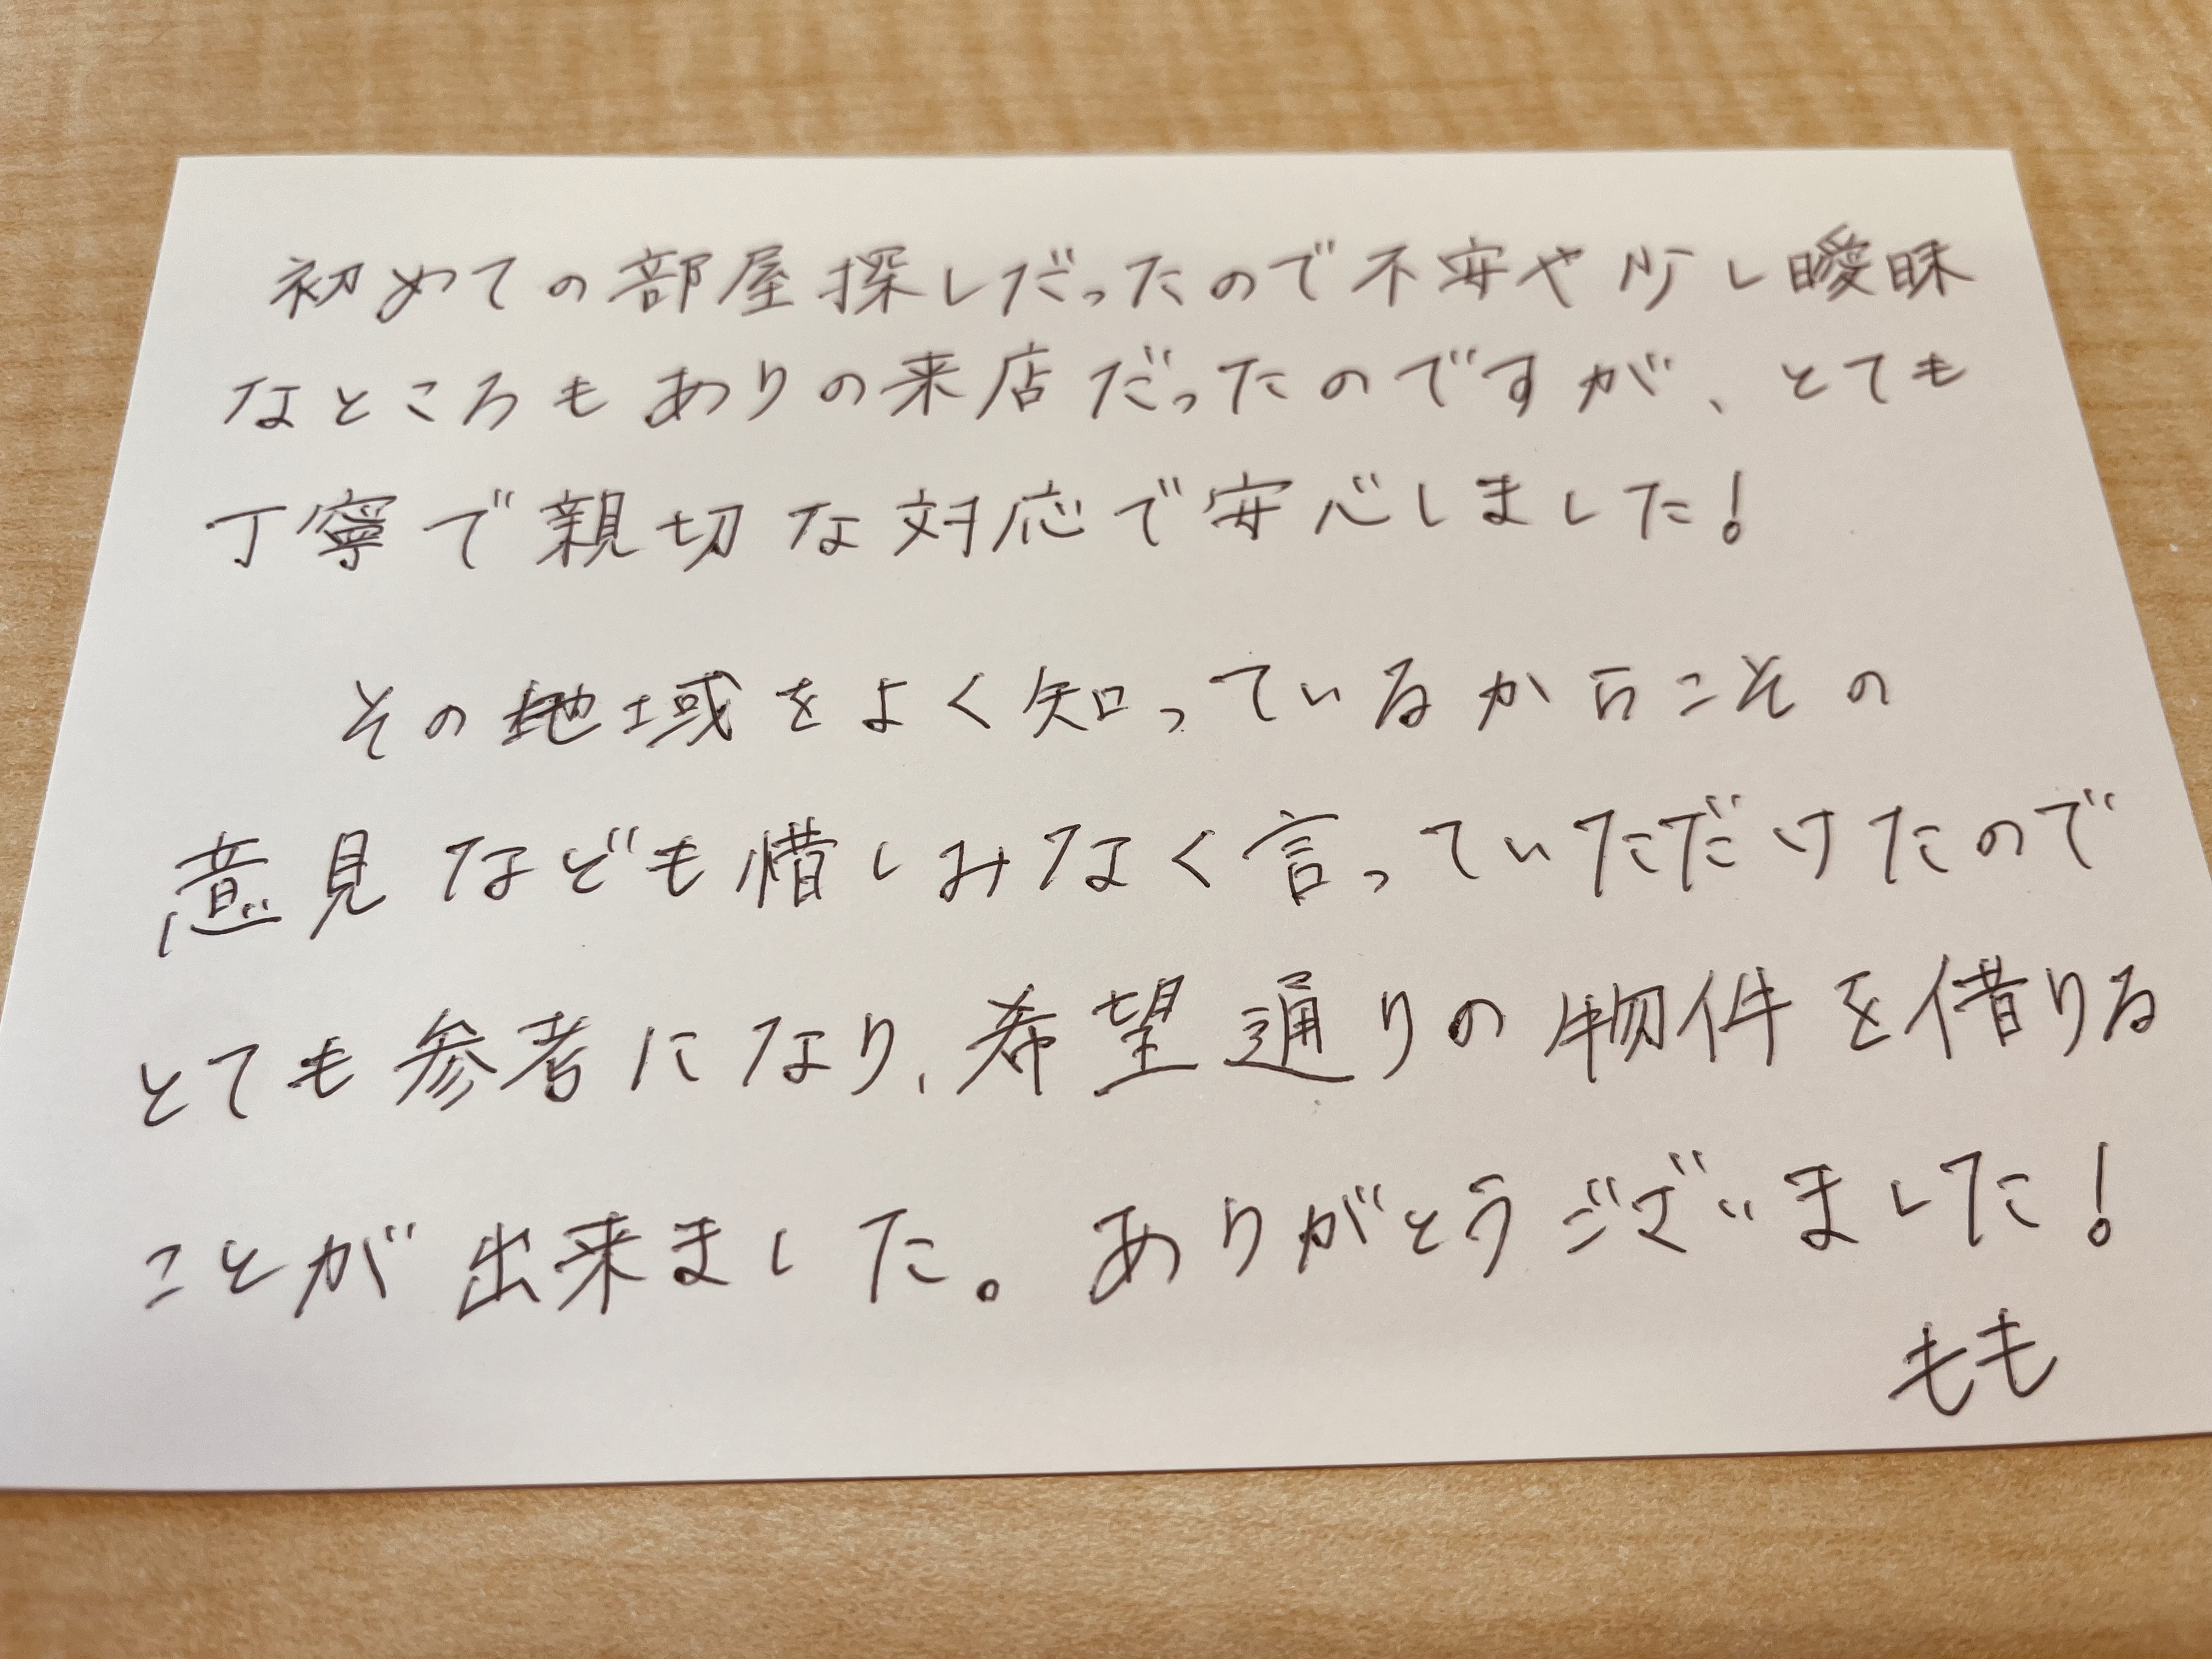 初めての部屋探しだったので不安や少し曖昧
なところもありの来店だったのですが、とても
丁寧で親切な対応で安心しました!
その地域をよく知っているからこその
意見なども惜しみなく言っていただけたので
とても参考になり、希望通りの物件を借りる
ことが出来ました。ありがとうございました!
もも